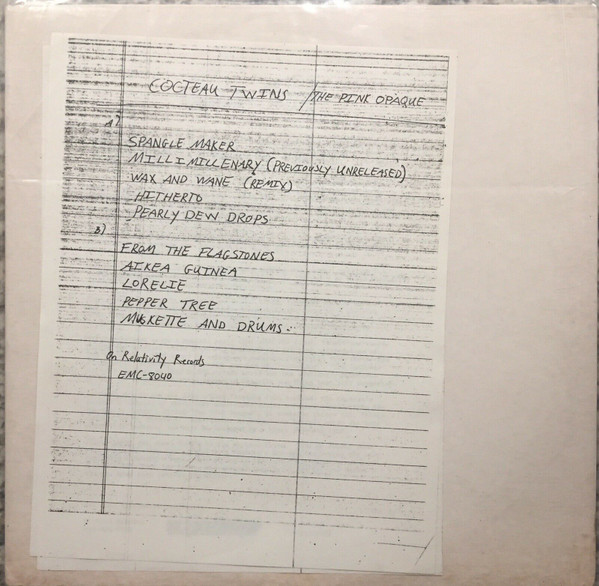 COCTEAU TWINS / THE PINK OPAQUE
A)
SPANGLE MAKER
MILLIMILLENARY (PREVIOUSLY UNRELEASED)
WAX AND WANE (REMIX)
HITHERTO
PEARLY DEW DROPS
B)
FROM THE FLAGSTONES
AIKEA GUINEA
LORELIE
PEPPER TREE
MUSKETTE AND DRUMS.
On Relativity Records
EMC-8040